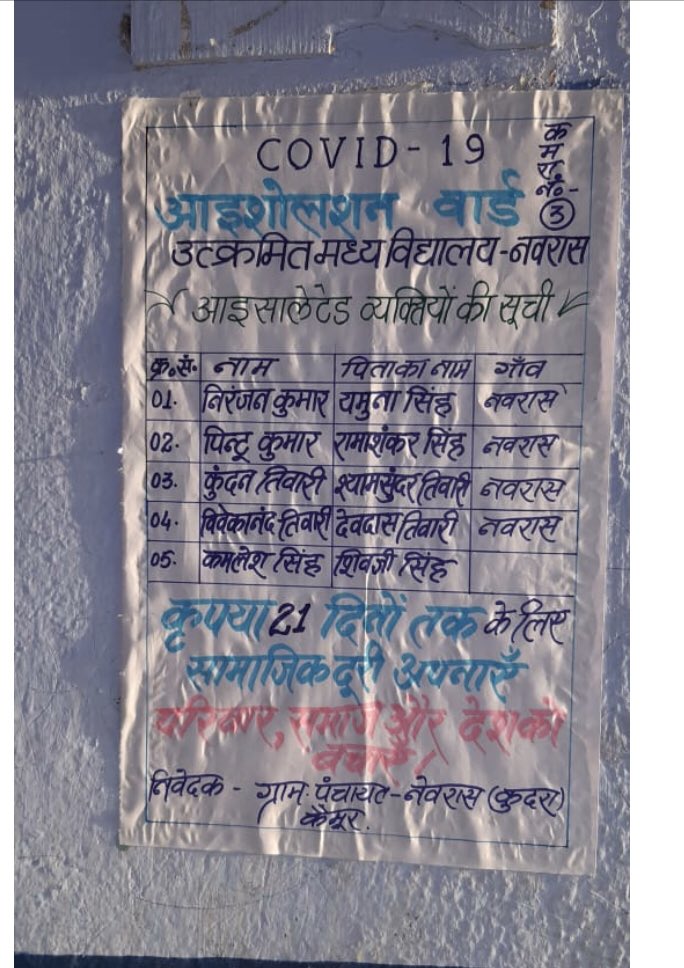 COVID-19
कमरा नं०- 3
आइशोलशन वार्ड
उत्क्रमित मध्य विद्यालय-नवरास
आइसालेटेड व्यक्तियों की सूची
क्र.सं. नाम पिता का नाम गाँव
01. निरंजन कुमार यमुना सिंह नवरास
02. पिन्टू कुमार रामाशंकर सिंह नवरास
03. कुंदन तिवारी श्यामसुंदर तिवारी नवरास
04. विवेकानंद तिवारी देवदास तिवारी नवरास
05. कमलेश सिंह शिवजी सिंह
कृपया 21 दिनों तक के लिए
सामाजिक दूरी अपनाएँ
परिवार, समाज और देश को
बचाएँ!
निवेदक - ग्राम: पंचायत-नेवरास (कुदरा)
कैमूर.